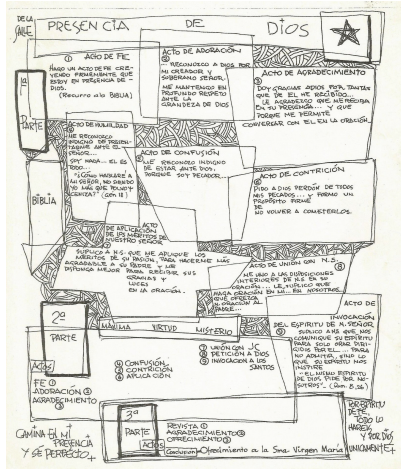 DE LA
SALLE
PRESENCIA DE DIOS
① ACTO DE FE
HAGO UN ACTO DE FE CRE-
YENDO FIRMEMENTE QUE
ESTOY EN PRESENCIA DE -
DIOS.
(Recurro a la BIBLIA)
ACTO DE ADORACIÓN
②
RECONOZCO A DIOS POR
MI CREADOR Y
SOBERANO SEÑOR.
ME MANTENGO EN
PROFUNDO RESPETO
ANTE LA
GRANDEZA DE DIOS
ACTO DE AGRADECIMIENTO
③
DOY GRACIAS A DIOS POR TANTAS
QUE DE EL HE RECIBIDO..
LE AGRADEZCO QUE ME RECIBA
EN SU PRESENCIA... Y
PORQUE ME PERMITE
CONVERSAR CON EL EN LA ORACIÓN.
1ª
PARTE
BIBLIA
ACTO DE HUMILDAD
④
ME RECONOZCO
INDIGNO DE PRESEN-
TARME ANTE EL
SEÑOR...
SOY NADA... EL ES
TODO...
"¿CÓMO HABLARE A
MI SEÑOR, NO SIENDO
YO MÁS QUE POLVO Y
CENIZA?" (Gen. 18)
ACTO DE CONFUSIÓN
⑤
ME RECONOZCO INDIGNO
DE ESTAR ANTE DIOS.
PORQUE SOY PECADOR...
ACTO DE CONTRICIÓN
⑥
PIDO A DIOS PERDÓN DE TODOS
MIS PECADOS... Y FORMO UN
PROPÓSITO FIRME
DE
NO VOLVER A COMETERLOS.
ACTO
DE APLICACIÓN
DE LOS MÉRITOS DE
NUESTRO SEÑOR
SUPLICO A N.S. QUE ME APLIQUE LOS
MÉRITOS DE SU PASIÓN, PARA HACERME MÁS
AGRADABLE A SU PADRE Y ME
DISPONGA MEJOR PARA RECIBIR SUS
GRACIAS Y
LUCES
EN LA ORACIÓN.
ACTO DE UNIÓN CON N.S.
⑧
ME UNO A LAS DISPOSICIONES
INTERIORES DE N.S EN SU
ORACIÓN... LE SUPLICO QUE
HAGA ORACIÓN EN MI... EN NOSOTROS..
QUE OFREZCA
MI ORACIÓN AL
PADRE...
ACTO DE
INVOCACIÓN
DEL ESPIRITU DE N. SEÑOR
SUPLICO A N.S QUE NOS
COMUNIQUE SU ESPIRITU
PARA SOLO ORAR DIRI-
GIDOS POR EL... PARA
NO ADMITIR, SINO LO
QUE SU ESPIRITU NOS
INSPIRE
"EL MISMO ESPIRITU
DE DIOS PIDE POR NO-
SOTROS" (Rom. 8,26)
2ª
PARTE
MÁXIMA VIRTUD MISTERIO
Actos
FE ①
ADORACIÓN ②
AGRADECIMIENTO
③
④ CONFUSIÓN
⑤ CONTRICIÓN
⑥ APLICACIÓN
⑦ UNIÓN CON JC
⑧ PETICIÓN A DIOS
⑨ INVOCACIÓN A LOS
SANTOS
3ª
PARTE
Actos
REVISTA ①
AGRADECIMIENTO②
OFRECIMIENTO③
Conclusión - Ofrecimiento a la Sma. Virgen María
CAMINA EN MI
PRESENCIA
Y SE PERFECTO
POR ESPIRITU
DE FE,
TODO LO
HAREIS,
Y POR DIOS
UNICAMENTE